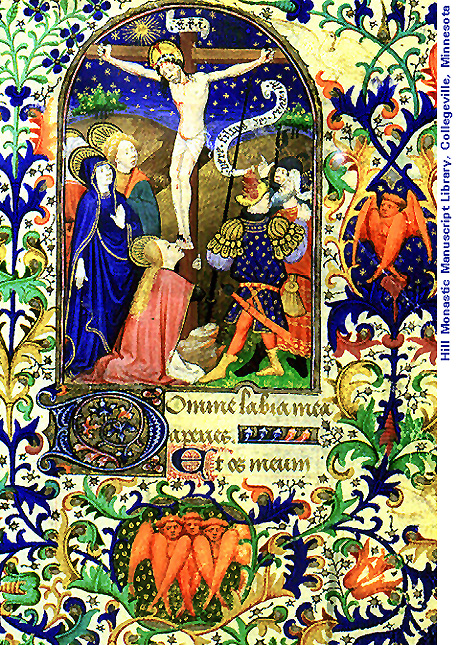 Domine labia mea
aperies.
Et os meum
Hill Monastic Manuscript Library, Collegeville, Minnesota